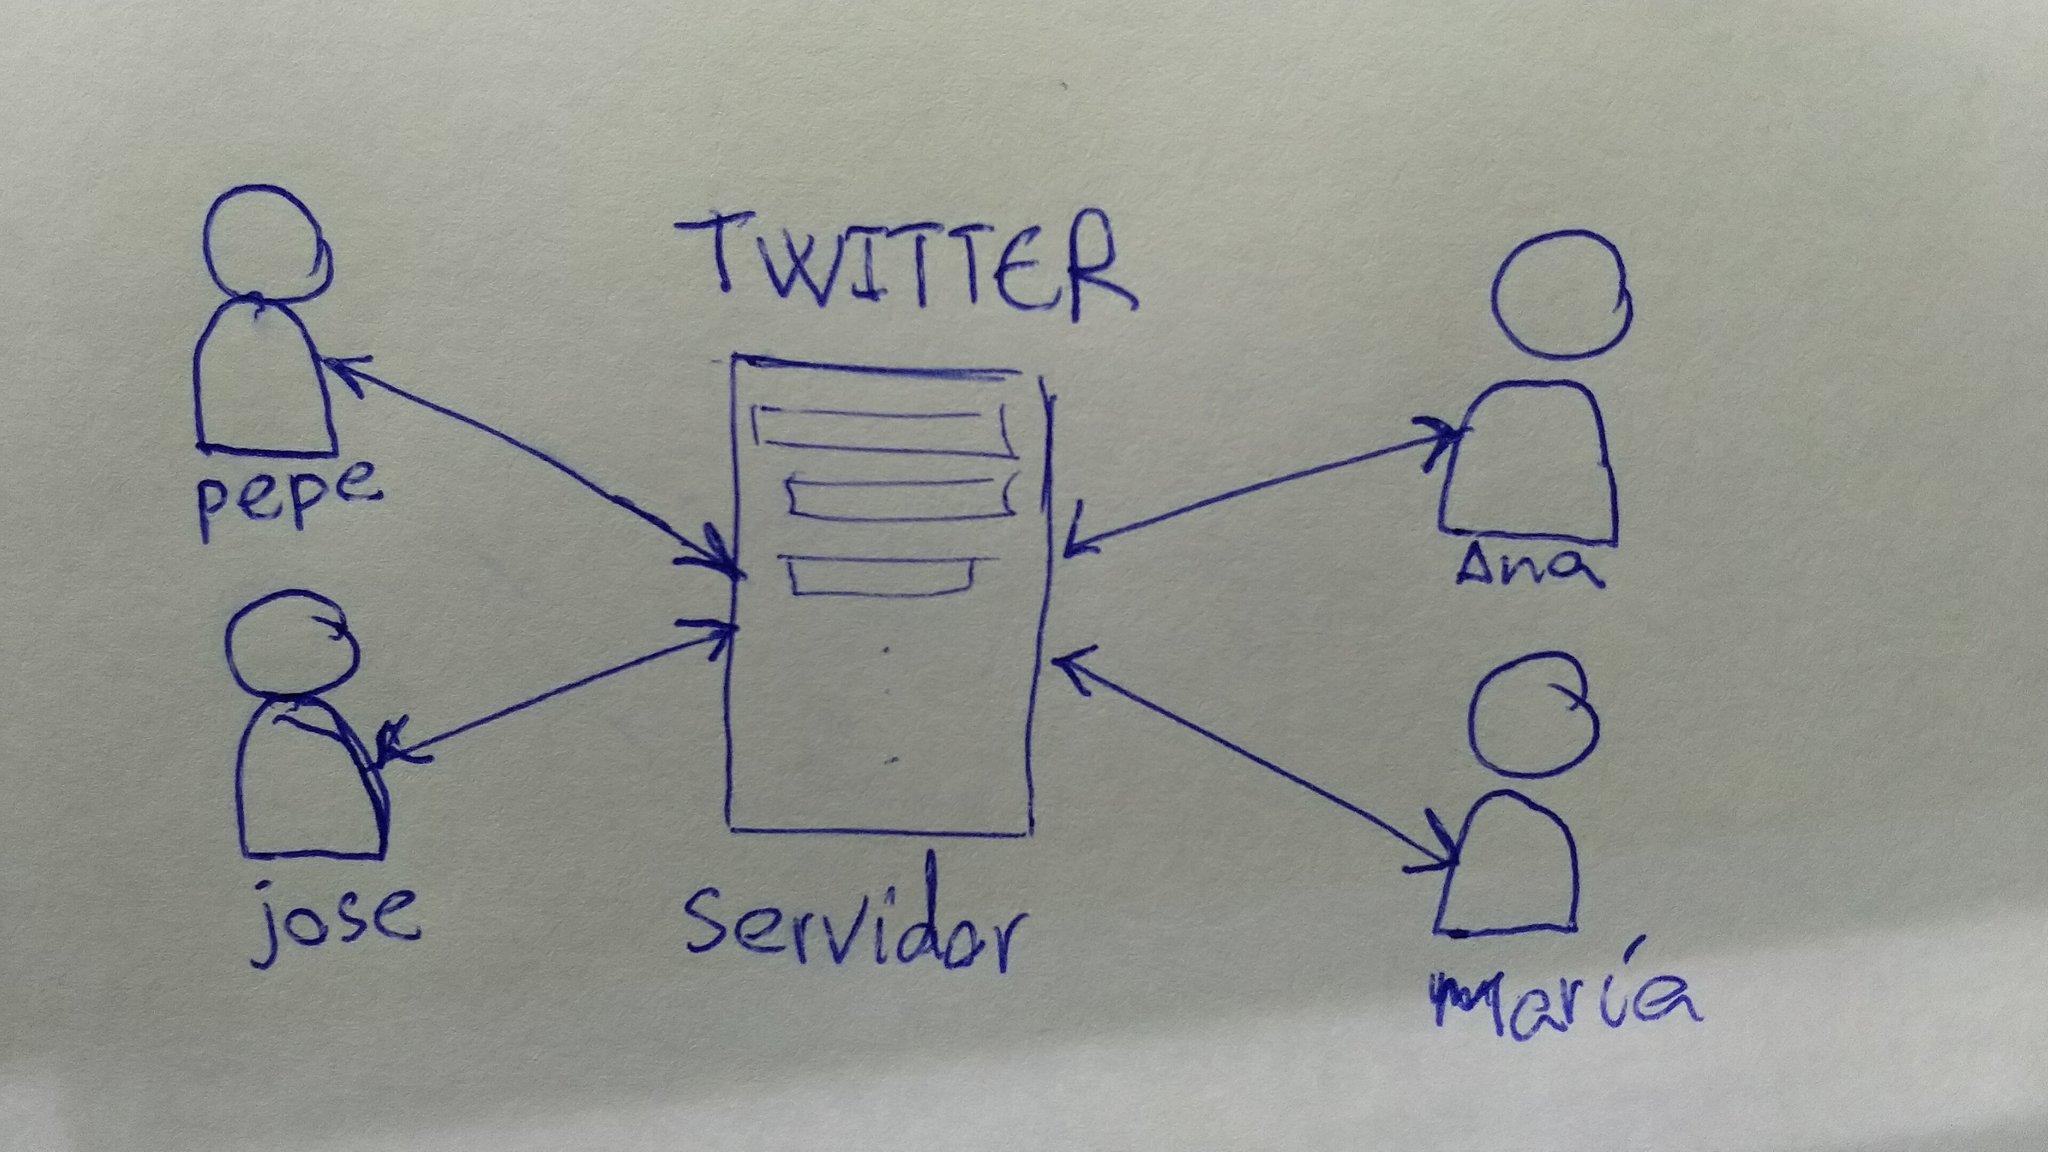 TWITTER
pepe
Ana
jose
servidor
maría